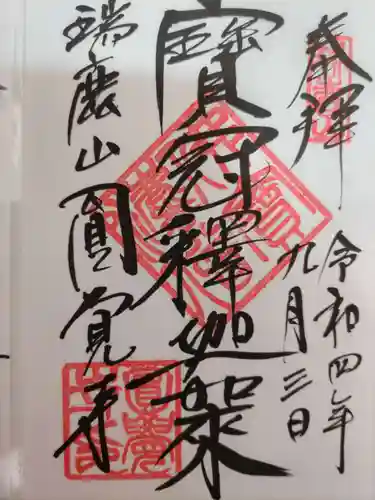 奉拝
令和四年
九月三日
寳冠釋迦如来
瑞鹿山圓覚寺